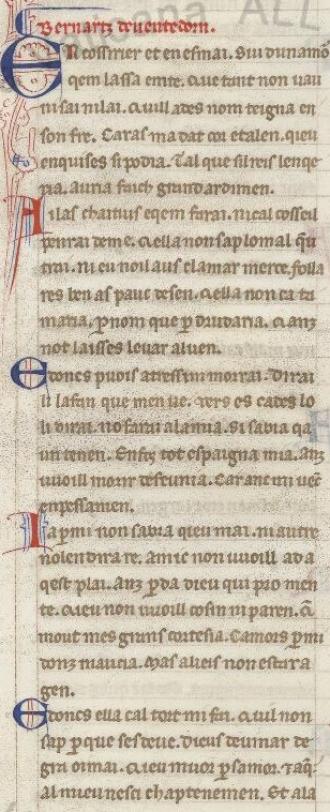 Bernartz deuentedorn.
EN cossirier et en esmai. Sui dunamor
qem lassa em te. que tant non uau
ni sai ni lai. qill ades nom teigna en
son fre. Caras ma dat cor e talen. qieu
enquises si podia. Tal que sil reis lenqe
ria. auria faich grand ardimen.
Ailas chaitius e qem farai. ni cal cosseil
penrai de me. qella non sap lo mal qeu
trai. ni eu noil aus clamar merce. folla
res ben as pauc de sen. qella non ta ta
maria. p nom que p drudaria. canz
not laisses leuar al uen.
E doncs puois atressim morrai. Dirai
li lafan que men ue. uers es cades lo
li dirai. no farai a la mia. Si sabia qa
un tenen. En fos tot espaigna mia. Anz
uuoill morir de feunia. Car anc mi uec
en pessamen.
Ia p mi non sabra qieu mai. ni autre
nolen dira re. amic non uuoill ad a
qest plai. Anz pda dieu qui pro men
te. qieu non uuoill cosin ni paren. q
mout mes grans cortesia. Camors p mi
donz maucia. Mas alieis non estara
gen.
E doncs ella cal tort mi fai. qil non
sap p que sesdeue. dieus deuinar de
gra oimai. qieu muor p samor. et aq
al mieu nesci chaptenemen. Et ala